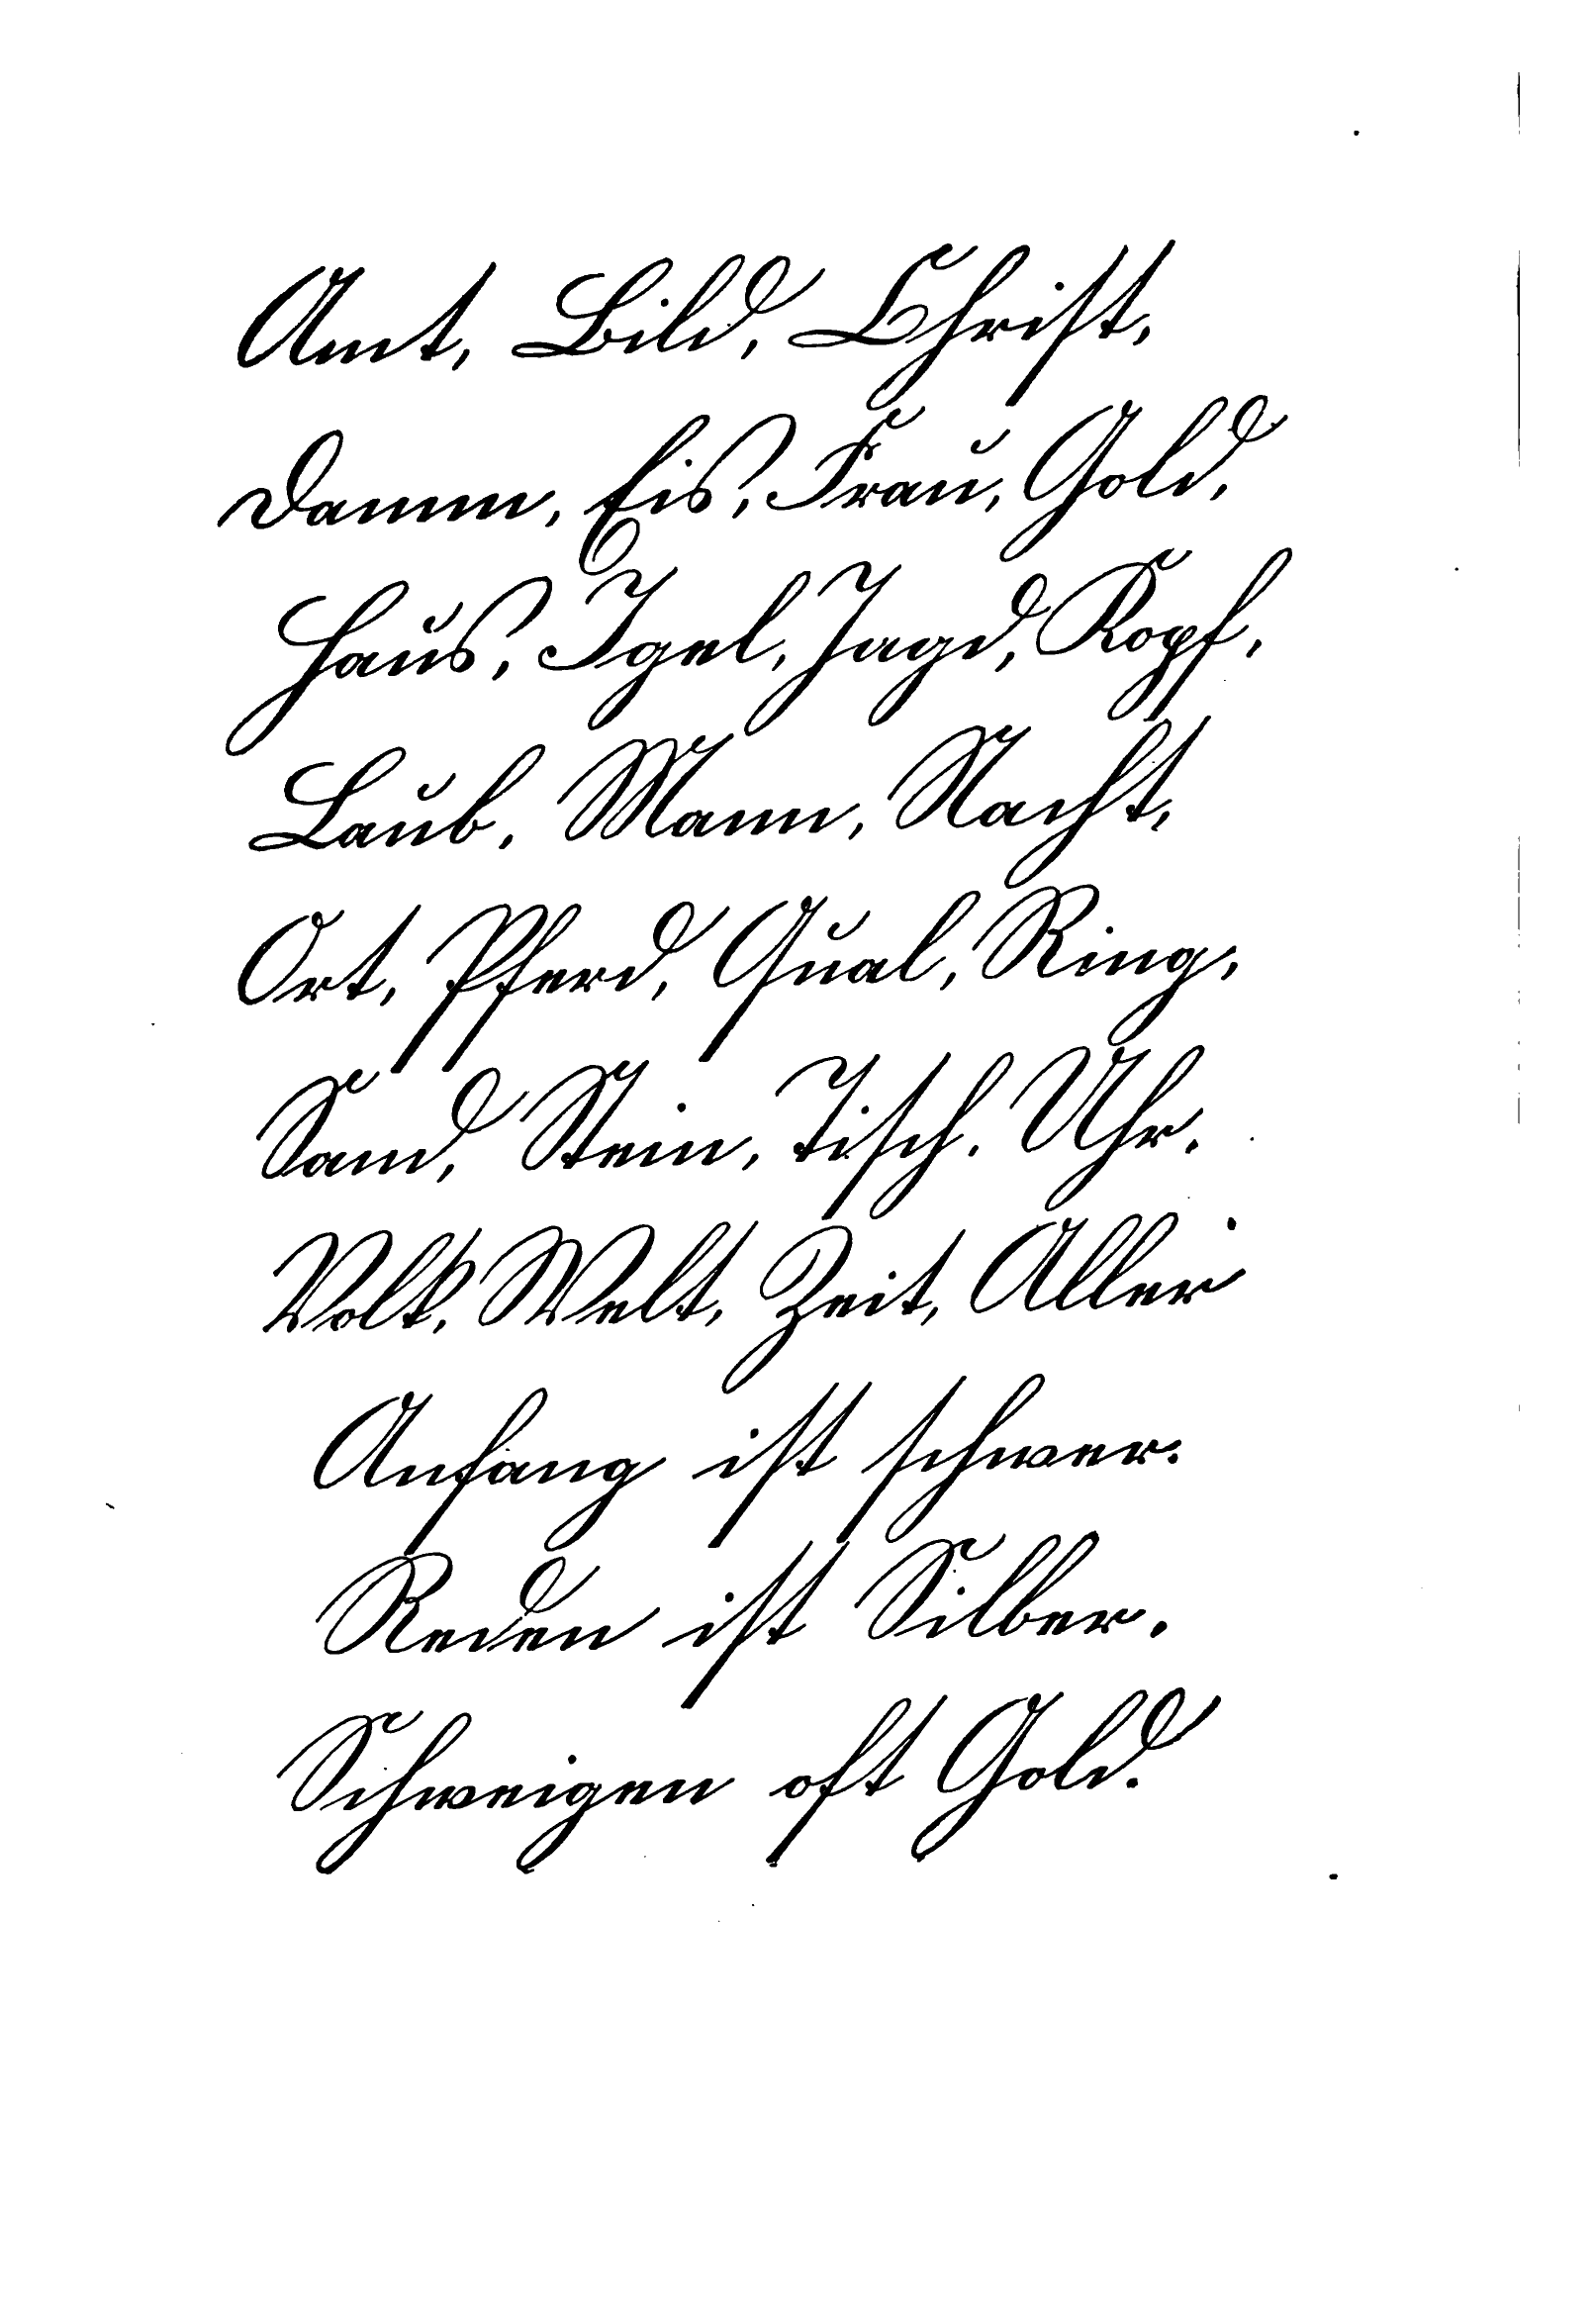 Amt, Bild, Christ,
Damm, Eis, Frau, Gold,
Haus, Igel, Jagd, Kopf,
Laub, Mann, Nacht,
Ort, Pferd, Qual, Ring,
Sand, Stein, Tisch, Uhr.
Volk, Welt, Zeit, Aller
Anfang ist schwer.
Reden ist Silber.
Schweigen oft Gold.